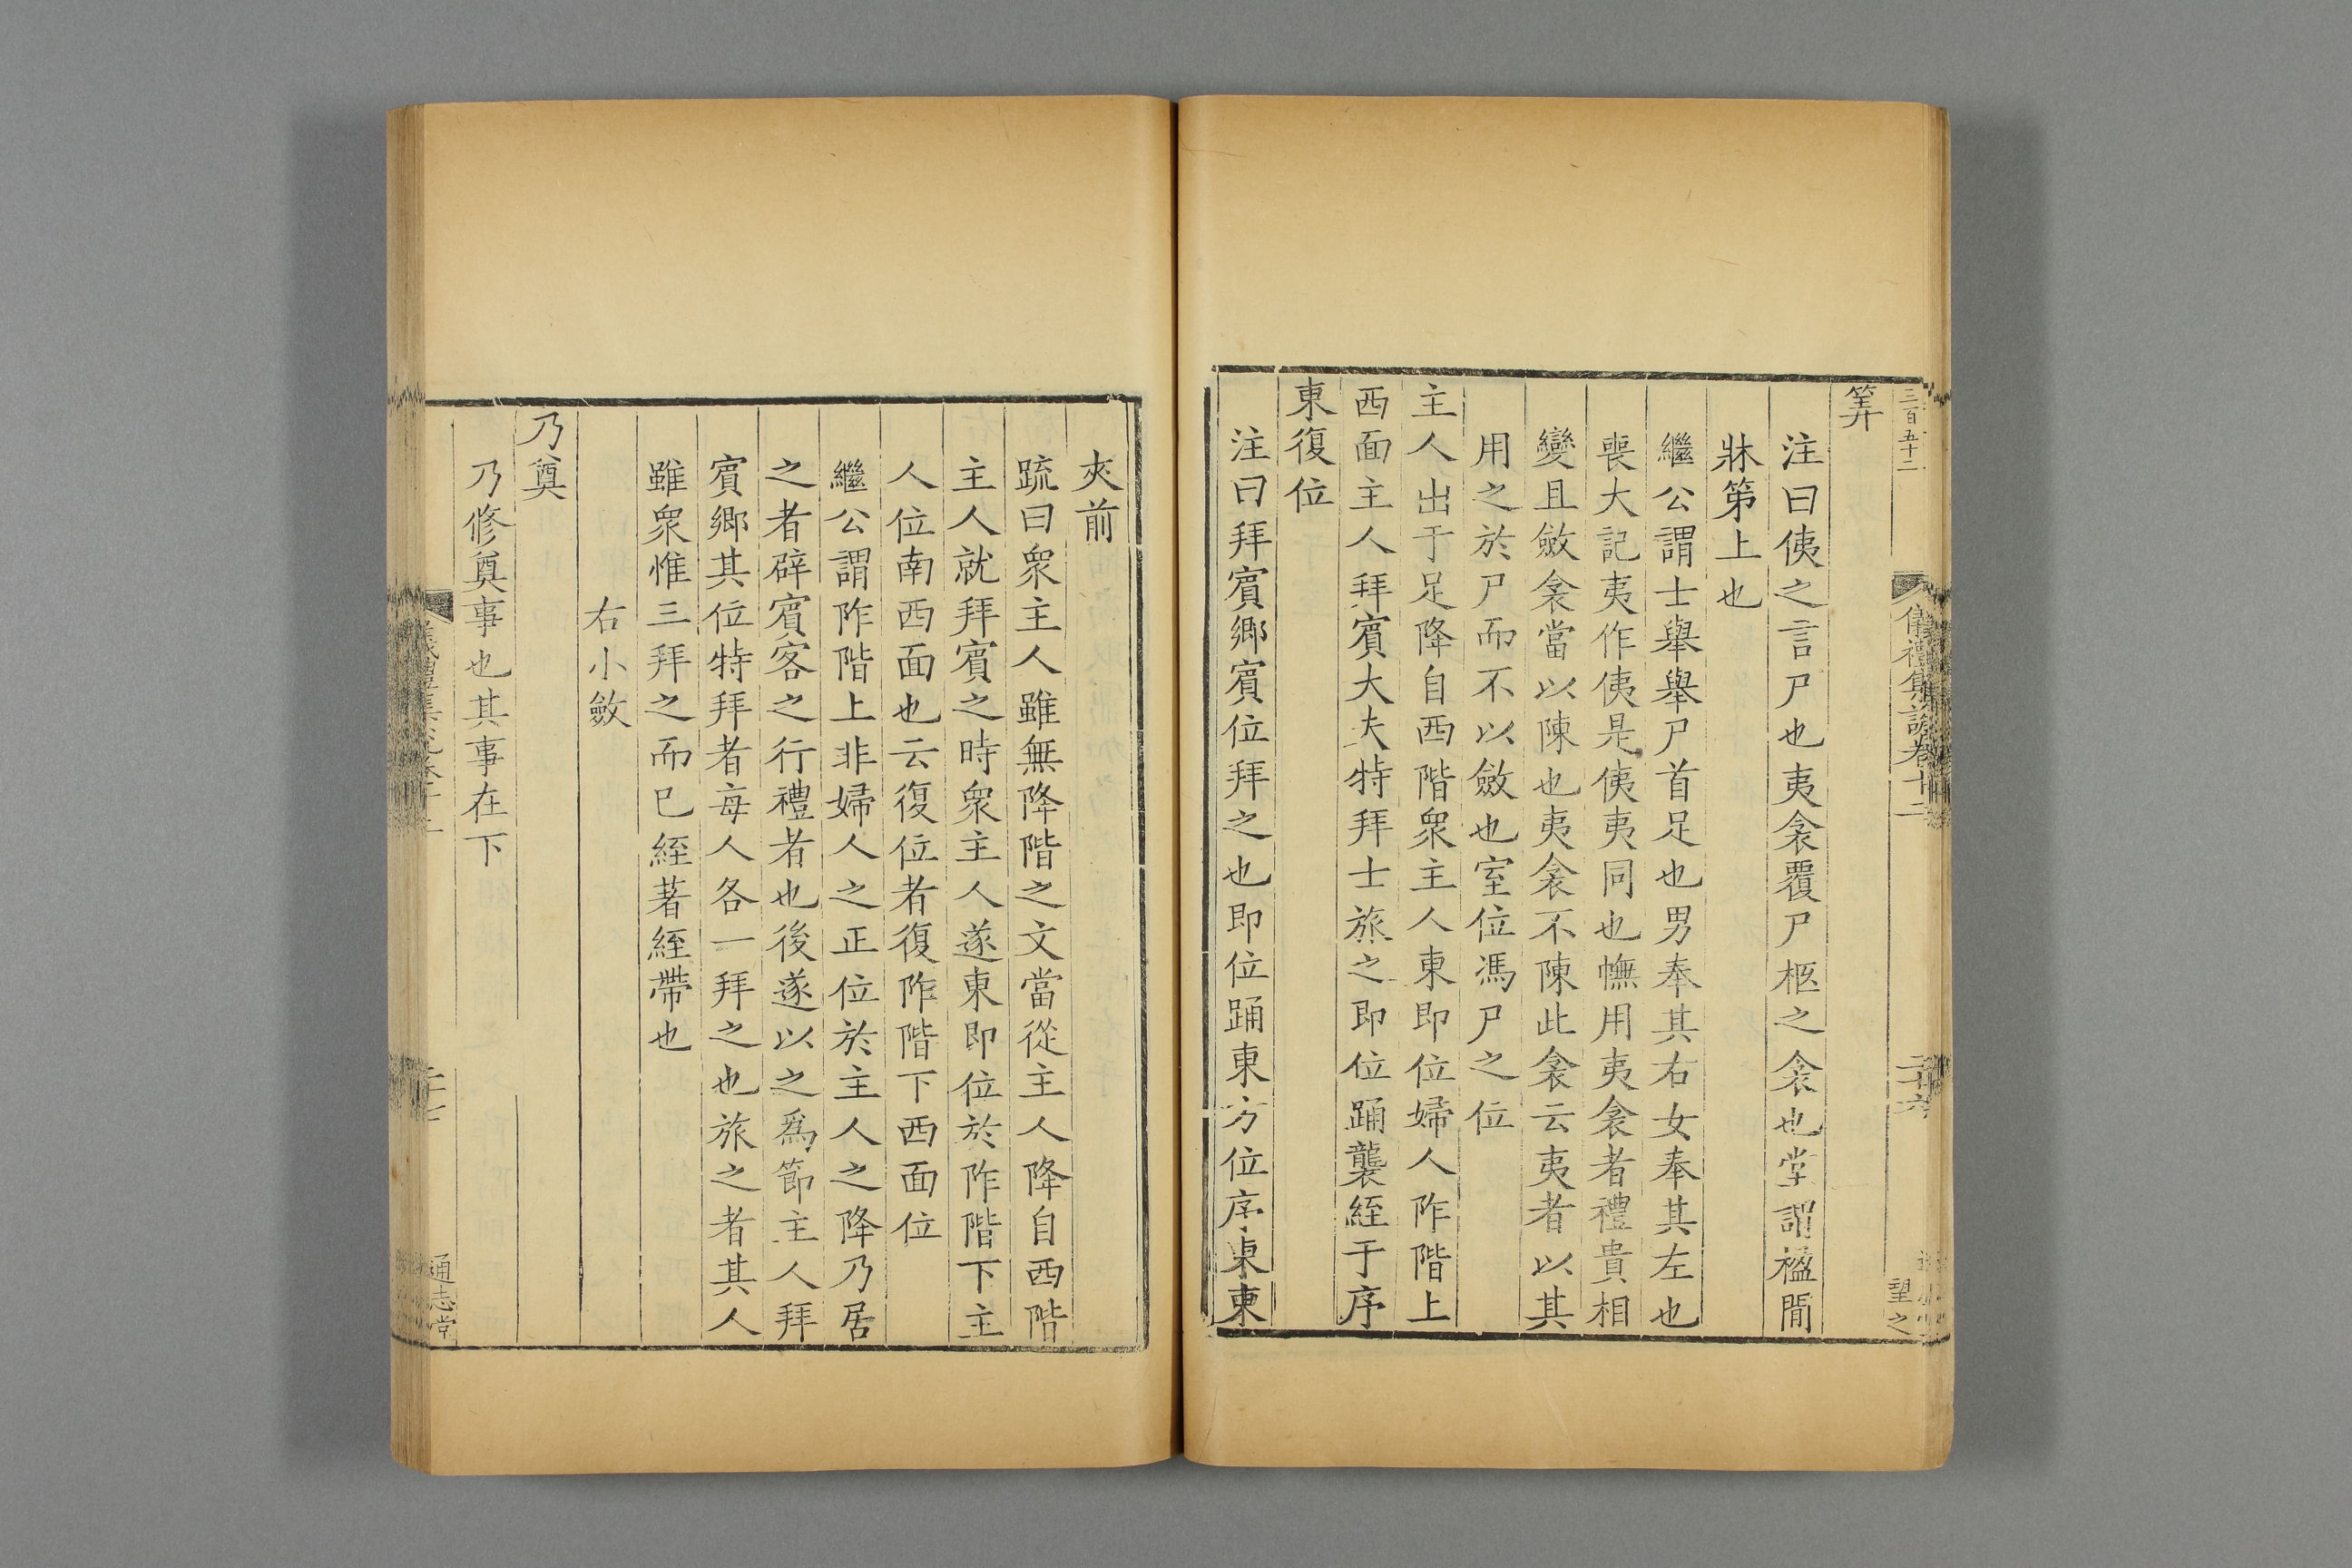 三百五十二
儀禮集說卷十二
二十六
望之
筭
注曰侇之言尸也夷衾覆尸柩之衾也堂謂楹閒
牀笫上也
繼公謂士舉舉尸首足也男奉其右女奉其左也
喪大記夷作侇是侇夷同也幠用夷衾者禮貴相
變且斂衾當以陳也夷衾不陳此衾云夷者以其
用之於尸而不以斂也室位馮尸之位
主人出于足降自西階衆主人東即位婦人阼階上
西面主人拜賓大夫特拜士旅之即位踊襲絰于序
東復位
注曰拜賓鄉賓位拜之也即位踊東方位序東東
夾前
疏曰衆主人雖無降階之文當從主人降自西階
主人就拜賓之時衆主人遂東即位於阼階下主
人位南西面也云復位者復阼階下西面位
繼公謂阼階上非婦人之正位於主人之降乃居
之者辟賓客之行禮者也後遂以之爲節主人拜
賓鄉其位特拜者每人各一拜之也旅之者其人
雖衆惟三拜之而已絰著絰帶也
右小斂
乃奠
乃修奠事也其事在下
通志堂